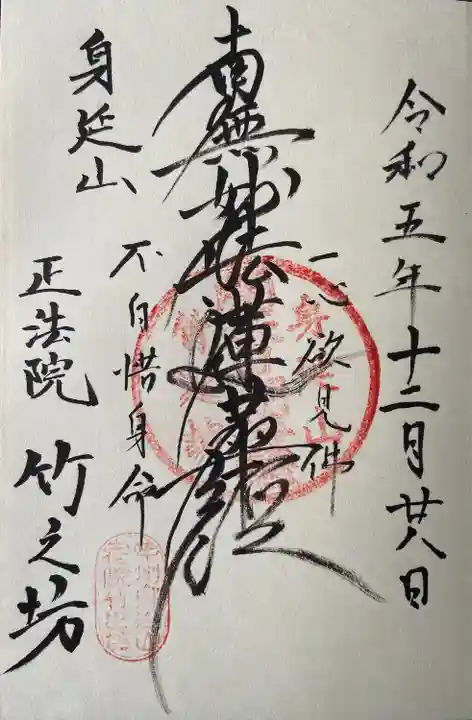 令和五年十二月廿八日
一心欲見佛
南無妙法蓮華經
不自惜身命
身延山
正法院 竹之坊